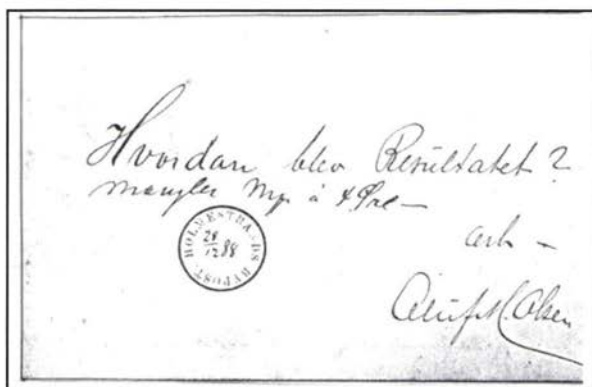 Hvordan blev Resultatet?
mangler Mp. à 4 Øre —
HOLMESTRANDS BYPOST.
28/12 88
Olsen